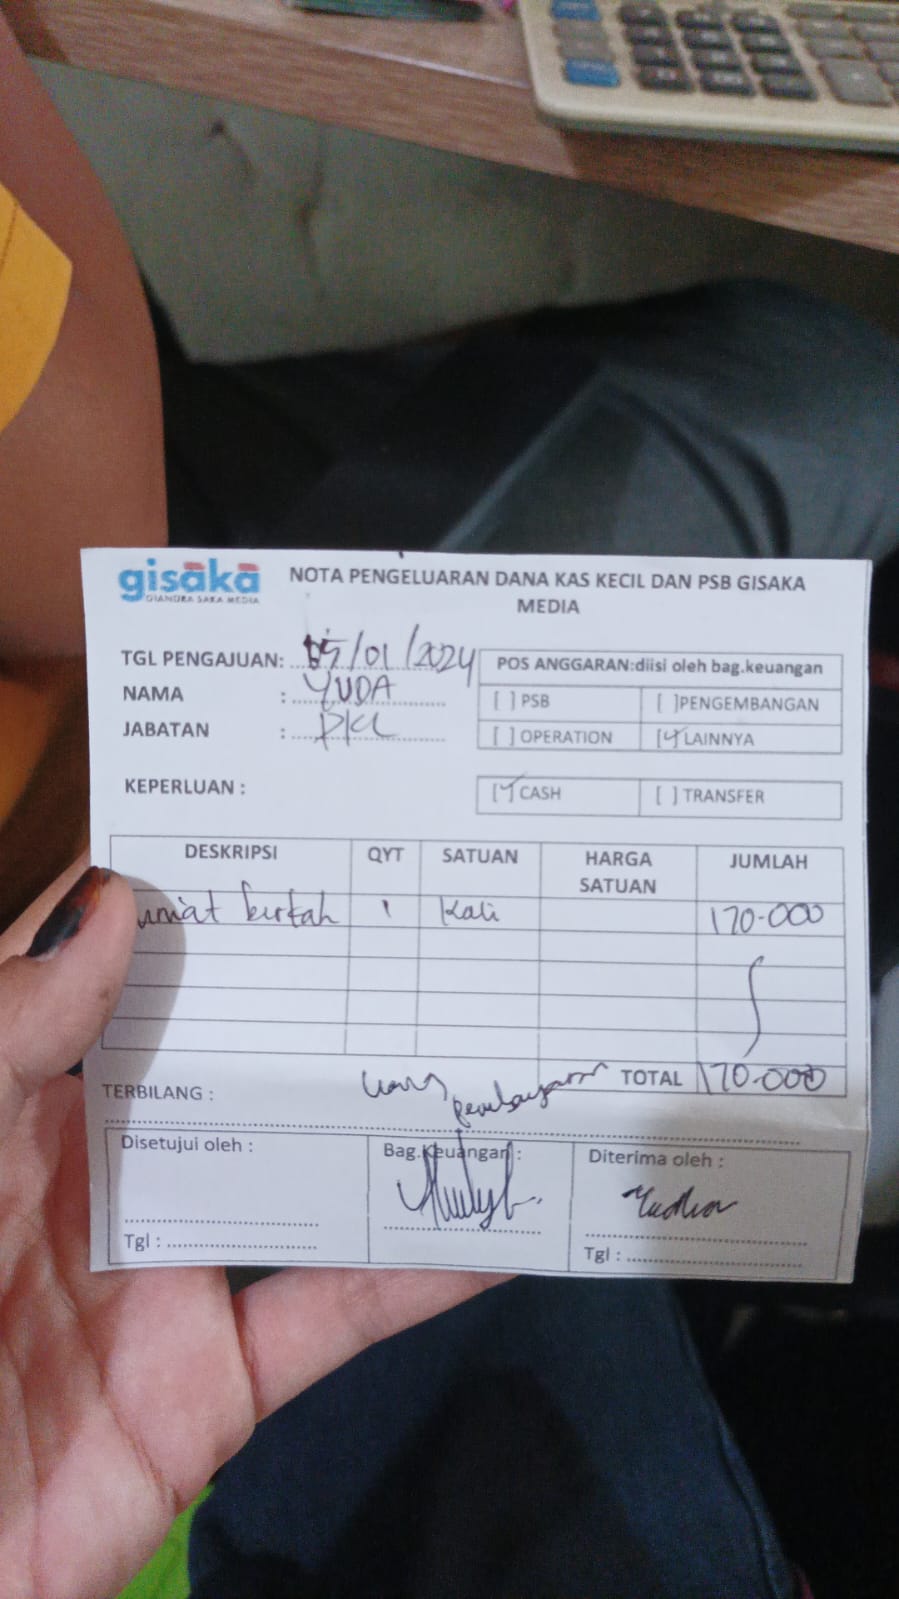 gisaka
GIANDRA SAKA MEDIA
NOTA PENGELUARAN DANA KAS KECIL DAN PSB GISAKA
MEDIA
TGL PENGAJUAN: 05/01/2024
NAMA : YUDA
JABATAN : PKL
POS ANGGARAN:diisi oleh bag.keuangan
[ ] PSB [ ]PENGEMBANGAN
[ ] OPERATION [✓] LAINNYA
KEPERLUAN :
[✓] CASH [ ] TRANSFER
DESKRIPSI QYT SATUAN HARGA SATUAN JUMLAH
jumat berkah 1 Kali 170.000
TOTAL 170.000
TERBILANG : uang pembayaran
Disetujui oleh : Bag.Keuangan : Diterima oleh :
Yudha
Tgl : Tgl :